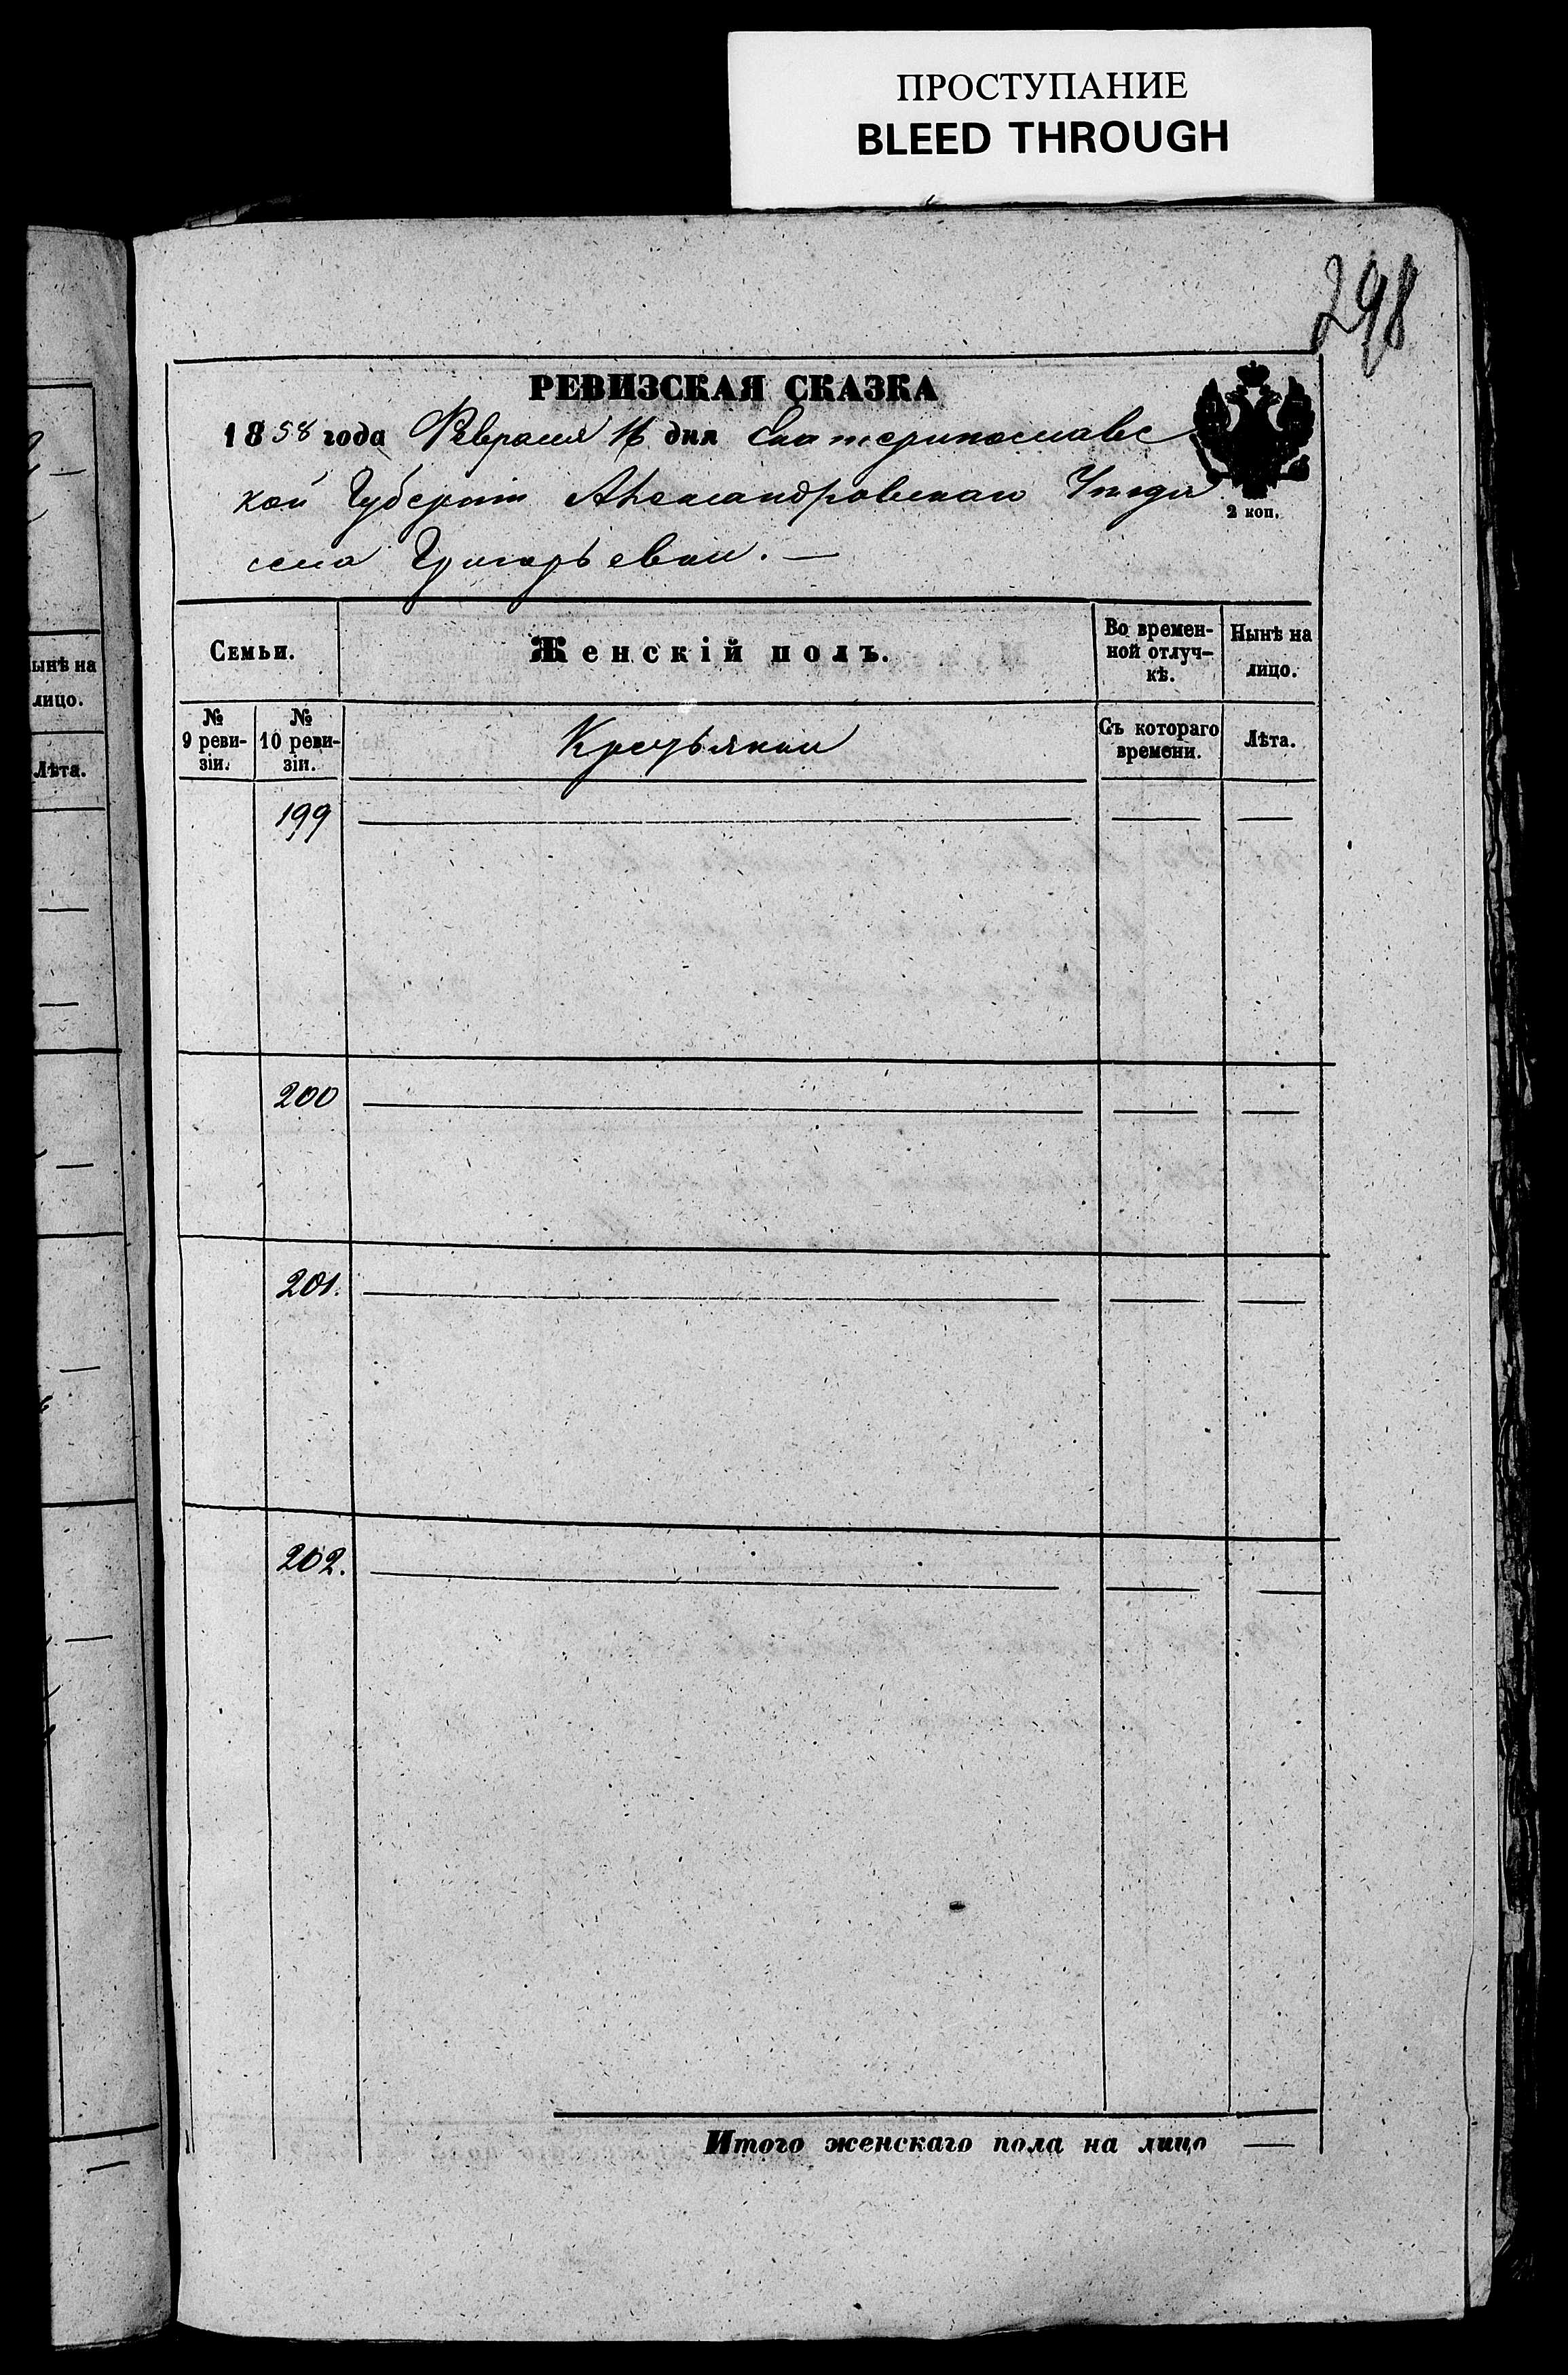 ПРОСТУПАНИЕ
BLEED THROUGH
298
РЕВИЗСКАЯ СКАЗКА
1858 года Февраля 16 дня Екатеринославс
кой Губерніи Александровскаго Уѣзда
2 коп.
села Григорьевки. —
Семьи.
Женскій полъ.
Во времен-
ной отлуч-
кѣ.
Нынѣ на
лицо.
№
9 реви-
зіи.
№
10 реви-
зіи.
Крестьянки
Съ котораго
времени.
Лѣта.
199 — — —
200 — — —
201. — — —
202. — — —
Итого женскаго пола на лицо —
ынѣ на
лицо.
Лѣта.